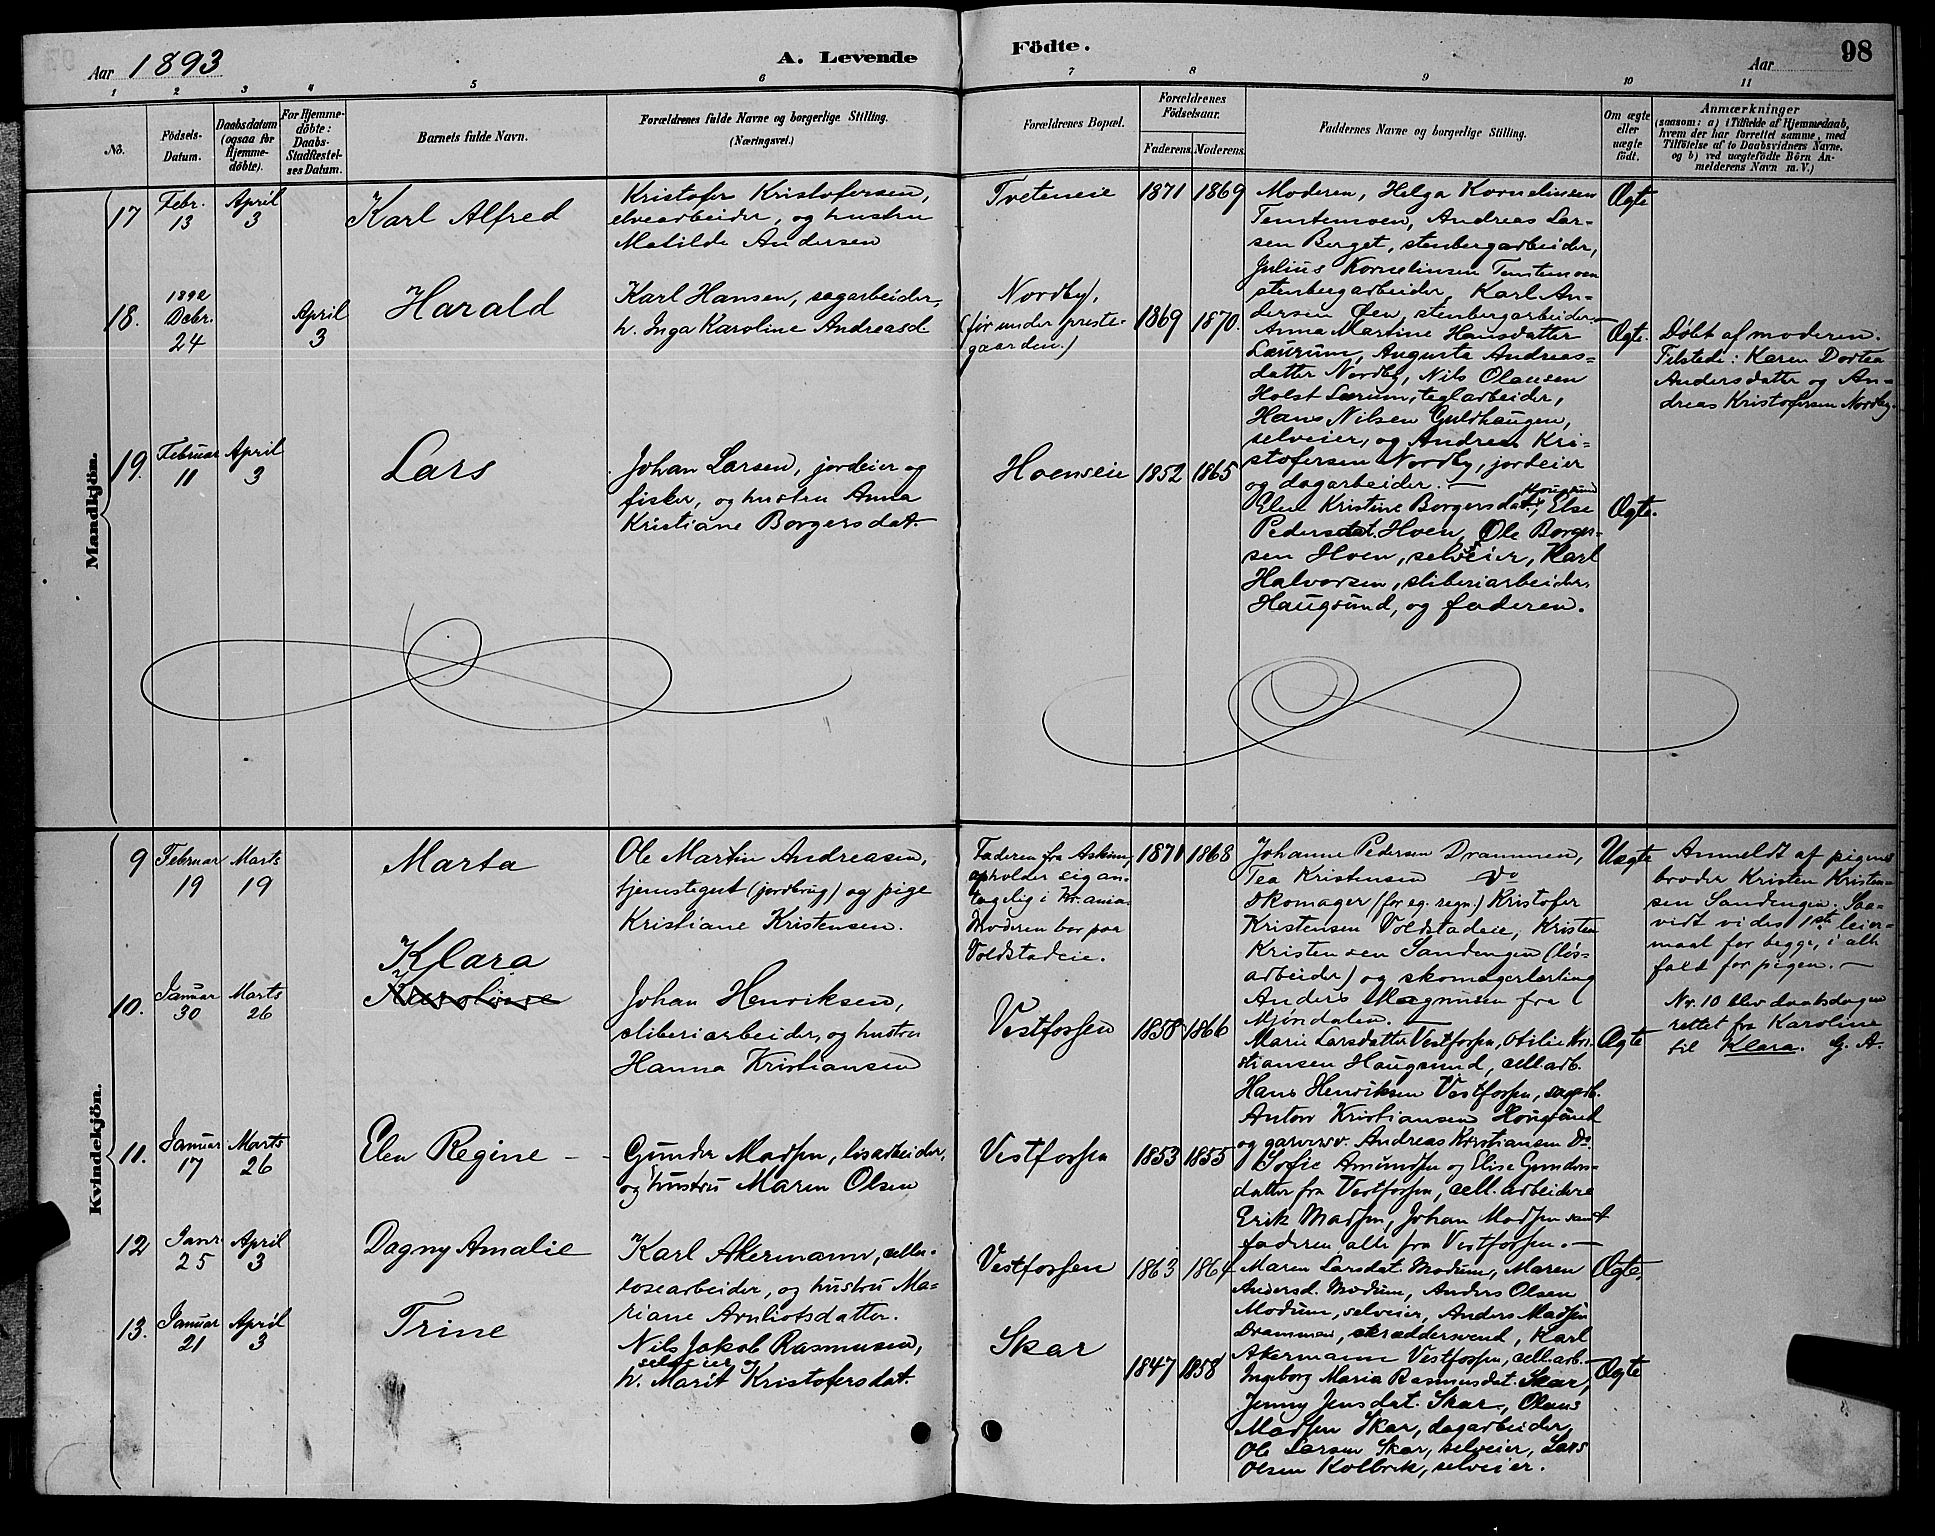 Aar 1893
A. Levende
Födte.
Aar
98
1 2 3 4 5 6 7 8 9 10 11
No.
Födsels-
Datum.
Daabsdatum
(ogsaa for
Hjemme-
döbte).
For Hjemme-
döbte:
Daabs-
Stadfæstel-
ses Datum.
Barnets fulde Navn.
Forældrenes fulde Navne og borgerlige Stilling.
(Næringsvei.)
Forældrenes Bopæl.
Forældrenes
Födselsaar.
Faderens.
Moderens.
Faddernes Navne og borgerlige Stilling.
Om ægte
eller
uægte
födt.
Anmærkninger
(saasom: a) i Tilfælde af Hjemmedaab,
hvem der har forrettet samme, med
Tilföielse af to Daabsvidners Navne,
og b) ved uægtefödte Börn An-
melderens Navn m. V.)
Mandkjön.
17
Febr.
13
April
3
Karl Alfred
Kristofer Kristofersen,
elvearbeider, og hustru
Matilde Andersen
Tveteneie
1871
1869
Moderen, Helga Kornelinsen
Temtemoen, Andreas Lar-
sen Berget, stenbergarbeider,
Julius Kornelinsen Temtemoen
stenbergarbeider, Karl An-
dersen Øen, stenbergarbeider.
Ægte
18.
1892
Debr.
24
April
3
Harald
Karl Hansen, sagarbeider,
h. Inga Karoline Andreasd.
Nordby,
(før under preste-
gaarden.)
1869
1870.
Anna Martine Hansdatter
Lærum, Augusta Andreas-
datter Nordby, Nils Olausen
Holst Lærum, teglarbeider,
Hans Nilsen Guldhaugen,
selveier, og Andreas Kri-
stofersen Nordby, jordeier
og dagarbeider.
Ægte.
Døbt af moderen.
Tilstede: Karen Dortea
Andersdatter og An-
dreas Kristofersen Nordby.
19.
Februar
11
April
3
Lars
Johan Larsen, jordeier og
fisker, og hustru Anna
Kristiane Borgersdat.
Hoenseie
1852
1865
Elen Kristine Borgersdat., Else
Pedersdat. Hoen, Ole Borger-
sen Hoen, selveier, Karl
Halvorsen, sliberiarbeider
Haugsund, og faderen.
Ægte.
Kvindekjön.
9
Februar
19
Marts
19
Marta
Ole Martin Andreasen,
tjenstegut (jordbrug) og pige
Kristiane Kristensen.
Faderen fra Askim,
opholder sig an-
tagelig i Kr.ania.
Moderen bor paa
Voldstadeie.
1871
1868
Johanne Pedersen Drammen,
Tea Kristensen Do
Skomager (for eg. regn.) Kristofer
Kristensen Voldstadeie, Kristen
Kristensen Sandengen (løs-
arbeider) og skomagerlærling
Anders Magnusen fra
Mjøndalen.
Uægte
Anmeldt af pigens
broder Kristen Kristen-
sen Sandengen. Saa-
vidt vides 1ste leier-
maal for begge, i alt
fald for pigen.
10.
Januar
30
Marts
26
Klara
Karoline
Johan Henriksen,
sliberiarbeider, og hustru
Hanna Kristiansen
Vestfossen
1858
1866
Marie Larsdatter Vestfossen, Otilie Kri-
stiansen Haugsund, cell.arb.
Hans Henriksen Vestfossen, sagarb.
Anton Kristiansen Hougsund
og garversv. Andreas Kristiansen Do
Ægte
Nr. 10 blev daabsdagen
rettet fra Karoline
til Klara. G. A.
11.
Januar
17
Marts
26
Elen Regine
Gunder Madsen, løsarbeider,
og hustru Maren Olsen
Vestfossen
1853
1855
Sofie Amundsen og Elise Gunders-
datter fra Vestfossen, cell. arbeidere
Erik Madsen, Johan Madsen samt
faderen alle fra Vestfossen.
12
Janr
25
April
3
Dagny Amalie
Karl Akermann, cellu-
losearbeider, og hustru Ma-
riane Arnliotsdatter.
Vestfossen
1863
1864
Maren Larsdat. Modum, Maren
Andersd. Modum, Anders Olsen
Modum, selveier, Anders Madsen
Drammen, skræddersvend, Karl
Akermann Vestfossen, cell.arb.
Ægte.
13.
Januar
21
April
3
Trine
Nils Jakob Rasmusen,
selveier og
h. Marit Kristofersdat.
Skar
1847
1858
Ingeborg Maria Rasmusdat. Skar,
Jenny Jensdat. Skar, Olaus
Madsen Skar, dagarbeider,
Ole Larsen Skar, selveier, Lars
Olsen Kolbrek, selveier.
Ægte